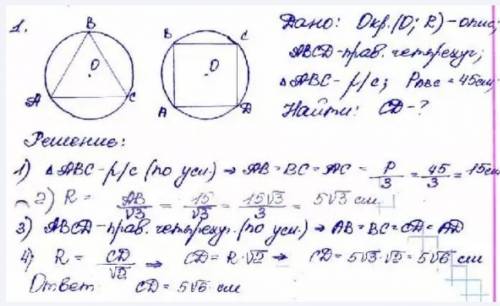 1.
B
O
A
C
B
C
O
A
D
Дано: Окр.(O; R) – опис,
ABCD – прав. четырехуг,
△ABC – р/с; P△ABC = 45см
Найти: CD – ?
Решение:
1) △ABC – р/с (по усл) → AB = BC = AC = P/3 = 45/3 = 15см
2) R = AB/√3 = 15/√3 = 15√3/3 = 5√3 см
3) ABCD – прав. четырехуг. (по усл.) → AB = BC = CD = AD
4) R = CD/√2 → CD = R·√2 → CD = 5√3·√2 = 5√6 см
Ответ CD = 5√6 см